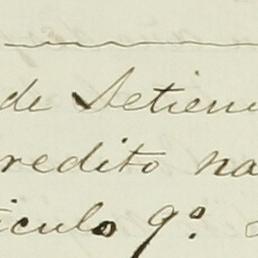 de Setiem
redito na
iculo 9º